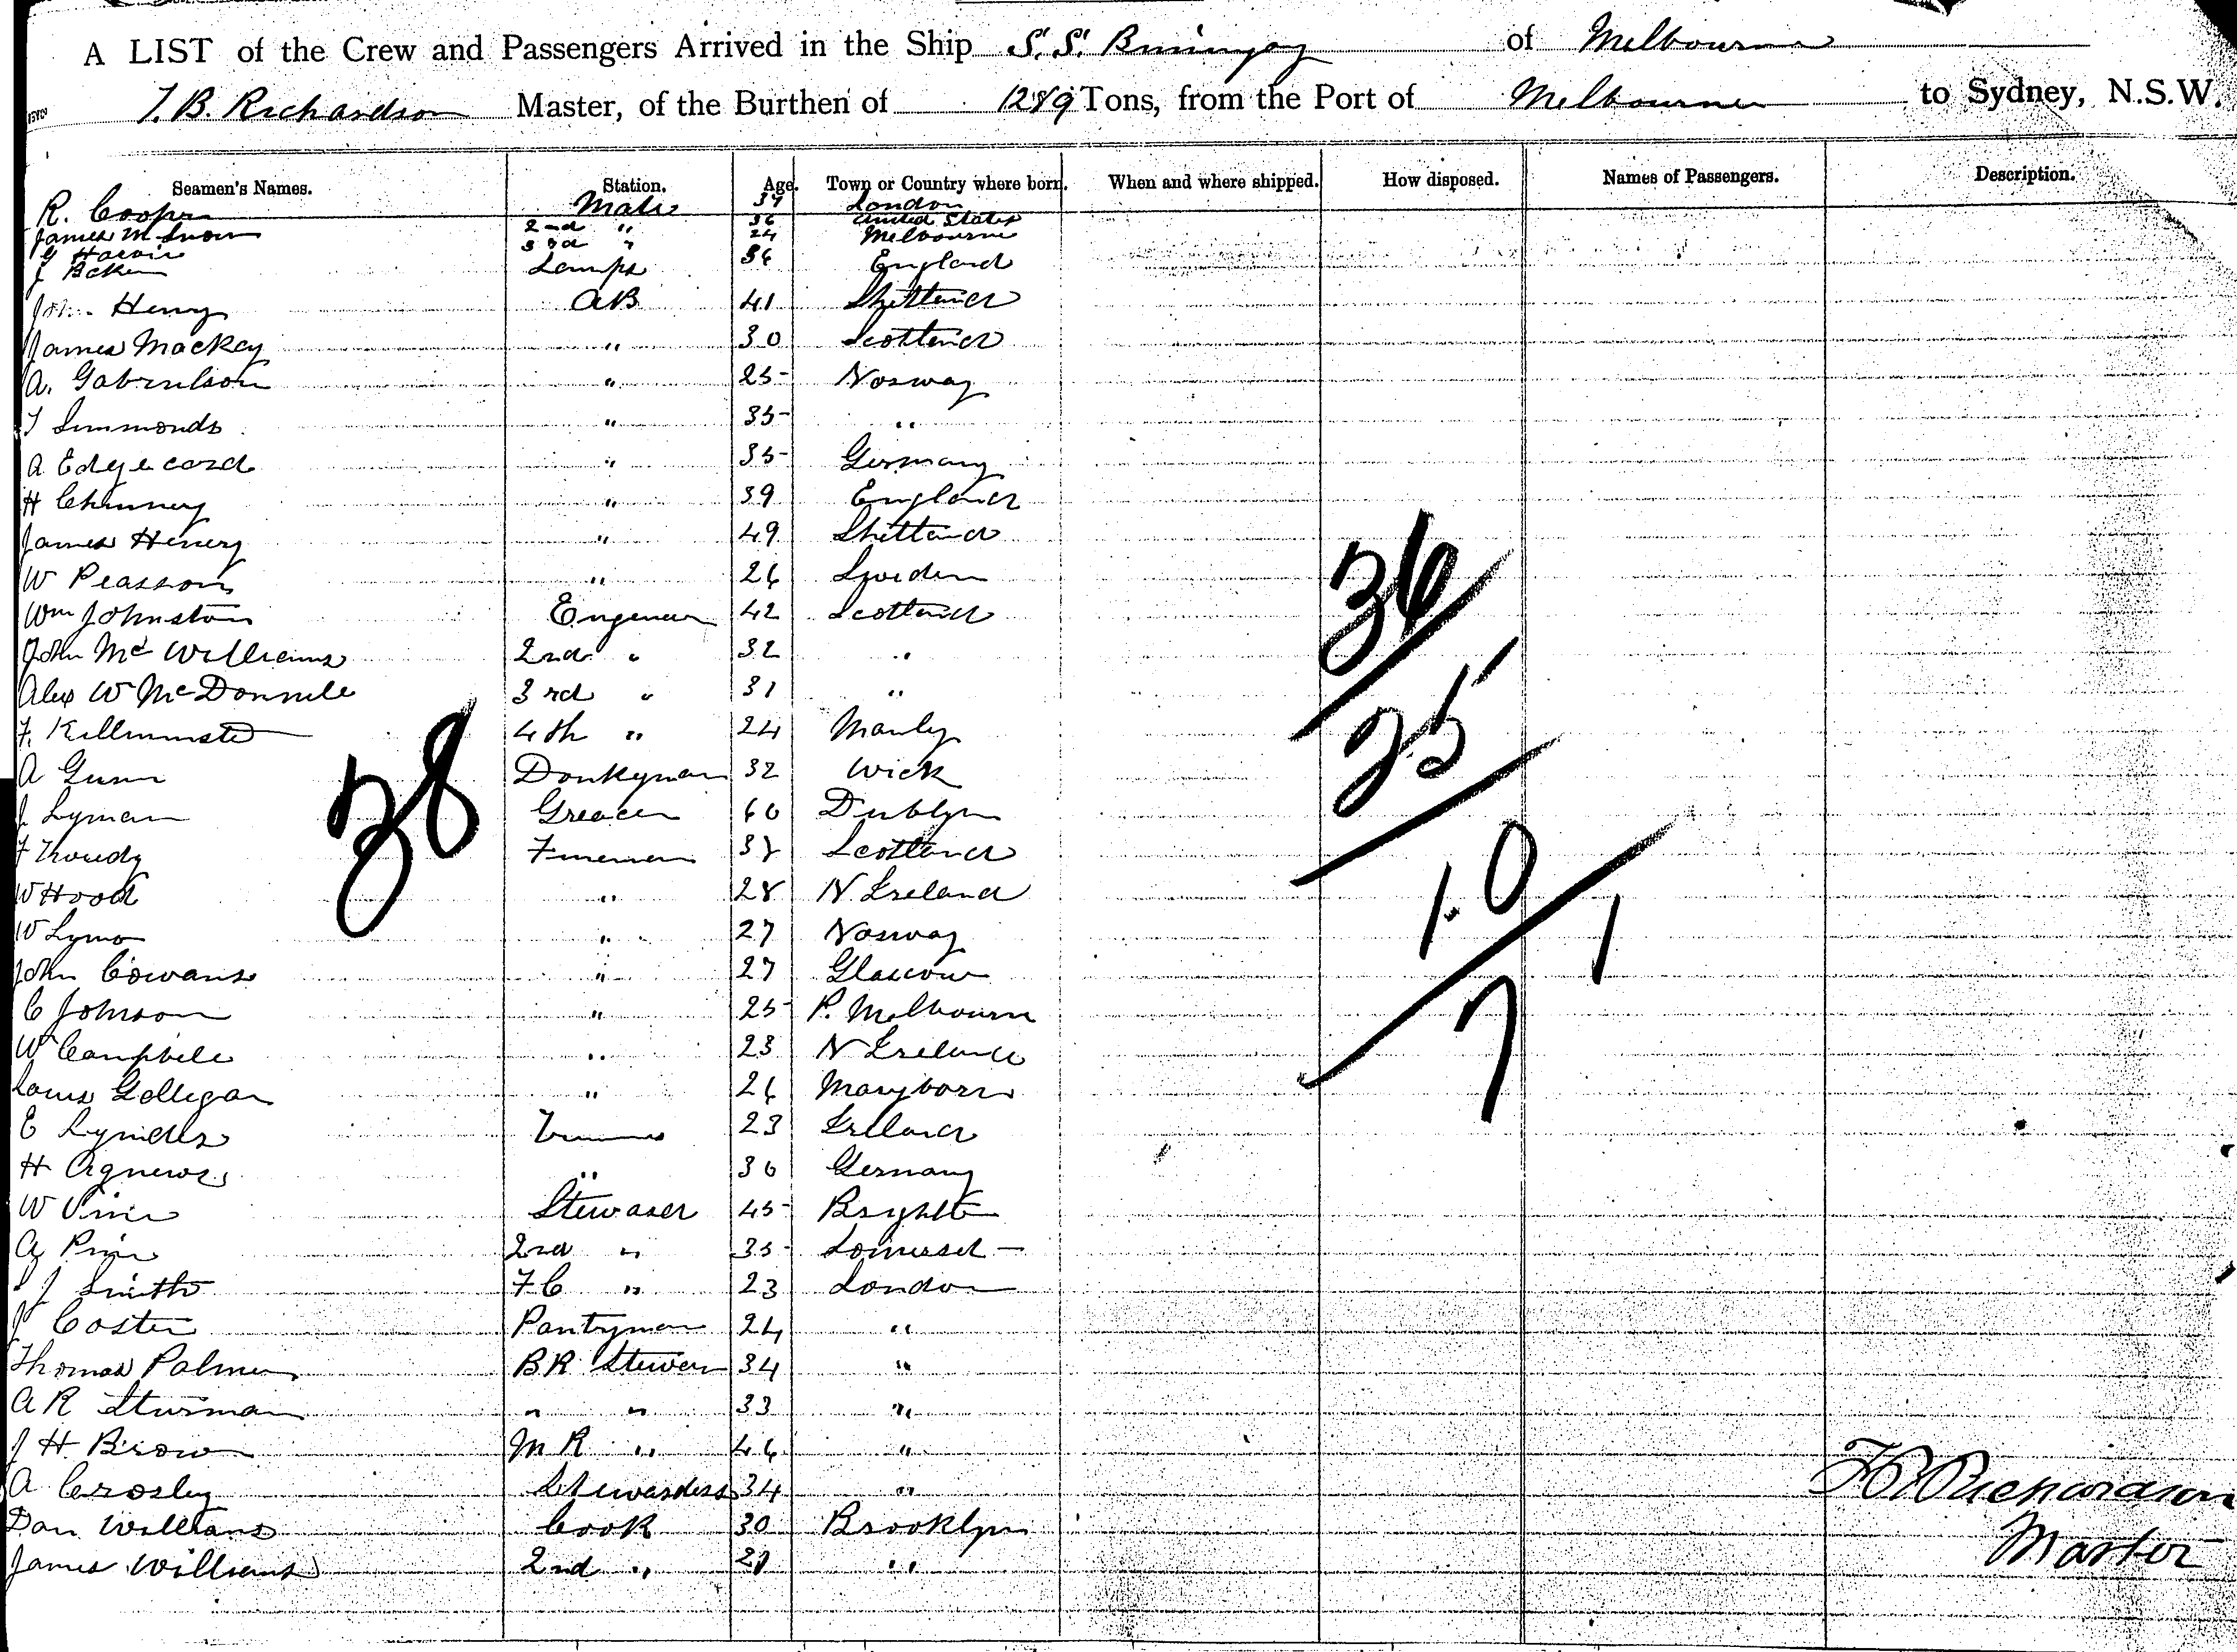 A LIST of the Crew and Passengers Arrived in the Ship S.S. Buninyong of Melbourne
T. B. Richardson Master, of the Burthen of 1289 Tons, from the Port of Melbourne to Sydney, N.S.W.
Seamen's Names. Station. Age. Town or Country where born. When and where shipped. How disposed. Names of Passengers. Description.
R. Cooper Mate 39 London
James M Snow 2nd " 36 United States
Harvie 3rd " 24 Melbourne
J Baker Lamps 36 England
John Henry AB 41 Shetland
James Mackay " 30 Scotland
A. Gabrielson " 25 Norway
T Simmonds " 35 "
A Edgecard " 35 Germany
H Chinnery " 39 England
James Henery " 49 Shetland
W Pearson " 26 Sweden
Wm Johnston Engeneer 42 Scotland
John Mc Williams 2nd " 32 "
Alex W McDonnele 3rd " 31 "
F. Killminster 4th " 24 Manly
A Gunn Donkyman 32 Wick
J Lyman Greacer 60 Dublyn
F Troudy Firemen 38 Scotland
W Hood " 28 N Ireland
W Lymo " 27 Norway
John Cowans " 27 Glascow
C Johnson " 25 P. Melbourn
W Campbele " 23 N Ireland
Louis Gelligan " 26 Maryboro
E Lyndes 23 Ireland
H Agnews " 36 Germany
W Steward 45
A Prin 2nd " 35 Somerset
J Smith FC " 23 London
J Coster Pantryman 24 "
Thomas Palmer BR Stewar 34 "
A R Sturman " " 33 "
J H Brown MR " 46 "
A Crosley Stewardess 34 "
Dan Williams Cook 30 Brooklyn
James Williams 2nd " 21 "
38
36
25
1.0
1
7
T B Richardson
Master